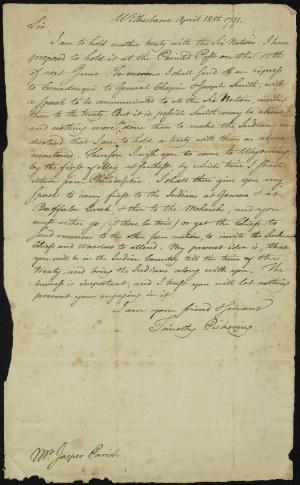 Wilkesbarre April 18th 1791.
Sir,
I am to hold another treaty with the Six Nations. I have
proposed to hold it at the Painted Post on the 15th
of next June. To-morrow I shall send off an express
to Canadaiqua to General Chapin & Joseph Smith, with
a speech to be communicated to all the Six Nations, inviting
them to the treaty. But it is possible Smith may be absent
and nothing more done than to make the Indians un-
derstand that I am to hold a treaty with them as above
mentioned. Therefore I wish you to come to Wyoming
by the first of May at farthest by which time I shall
return from Philadelphia. I shall then give you my
speech to carry first to the Indians at Genesee & at
Buffaloe Creek & then to the Mohawks; and you
must either go (if there be time) or get the Chiefs to
send runners to the other nations to invite the Sachems
Chiefs and Warriors to attend. My present idea is, that
you will be in the Indian Country till the time of the
treaty, and bring the Indians along with you. The
business is important; and I trust you will let nothing
prevent your engaging in it.
I am your friend & servant
Timothy Pickering
Mr. Jasper Parish